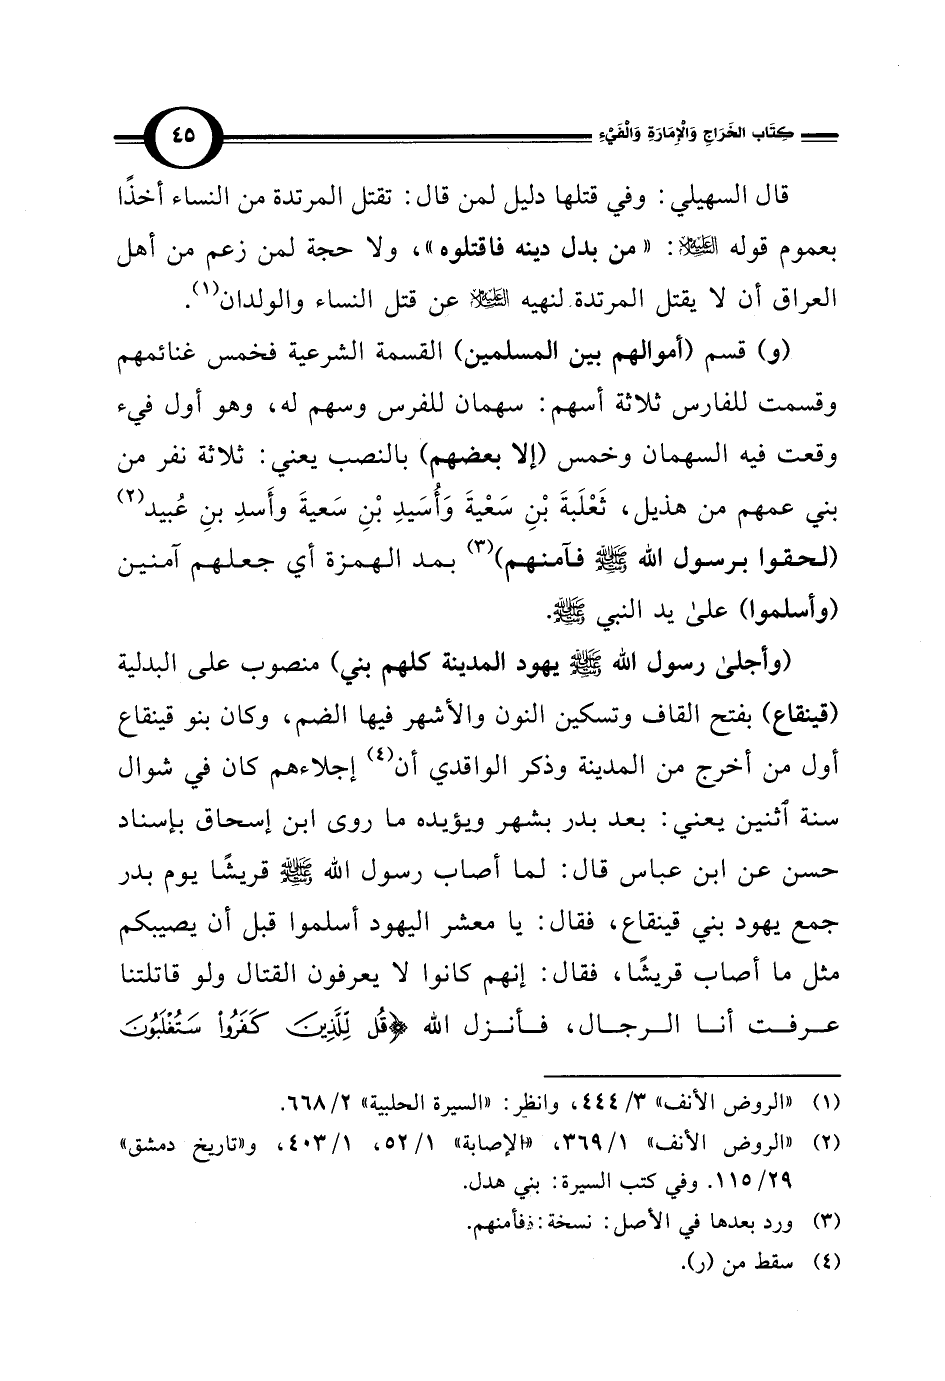 كِتَاب الخَرَاجِ وَالْإِمَارَةِ وَالْفَيْءِ ٤٥
قال السهيلي: وفي قتلها دليل لمن قال: تقتل المرتدة من النساء أخذًا
بعموم قوله عليه السلام: «من بدل دينه فاقتلوه»، ولا حجة لمن زعم من أهل
العراق أن لا يقتل المرتدة لنهيه عليه السلام عن قتل النساء والولدان(١).
(و) قسم (أموالهم بين المسلمين) القسمة الشرعية فخمس غنائمهم
وقسمت للفارس ثلاثة أسهم: سهمان للفرس وسهم له، وهو أول فيء
وقعت فيه السهمان وخمس (إلا بعضهم) بالنصب يعني: ثلاثة نفر من
بني عمهم من هذيل، ثَعْلَبَةَ بْنِ سَعْيَةَ وَأُسَيدِ بْنِ سَعيةَ وأَسدِ بنِ عُبيد(٢)
(لحقوا برسول الله ﷺ فآمنهم)(٣) بمد الهمزة أي جعلهم آمنين
(وأسلموا) علىٰ يد النبي ﷺ.
(وأجلىٰ رسول الله ﷺ يهود المدينة كلهم بني) منصوب على البدلية
(قينقاع) بفتح القاف وتسكين النون والأشهر فيها الضم، وكان بنو قينقاع
أول من أخرج من المدينة وذكر الواقدي أن(٤) إجلاءهم كان في شوال
سنة ٱثنين يعني: بعد بدر بشهر ويؤيده ما روى ابن إسحاق بإسناد
حسن عن ابن عباس قال: لما أصاب رسول الله ﷺ قريشًا يوم بدر
جمع يهود بني قينقاع، فقال: يا معشر اليهود أسلموا قبل أن يصيبكم
مثل ما أصاب قريشًا، فقال: إنهم كانوا لا يعرفون القتال ولو قاتلتنا
عرفت أنا الرجال، فأنزل الله ﴿قُل لِّلَّذِينَ كَفَرُواْ سَتُغْلَبُونَ
(١) «الروض الأنف» ٣/ ٤٤٤، وانظر: «السيرة الحلبية» ٢/ ٦٦٨.
(٢) «الروض الأنف» ١/ ٣٦٩، «الإصابة» ١/ ٥٢، ١/ ٤٠٣، و«تاريخ دمشق»
٢٩/ ١١٥. وفي كتب السيرة: بني هدل.
(٣) ورد بعدها في الأصل: نسخة: فأمنهم.
(٤) سقط من (ر).